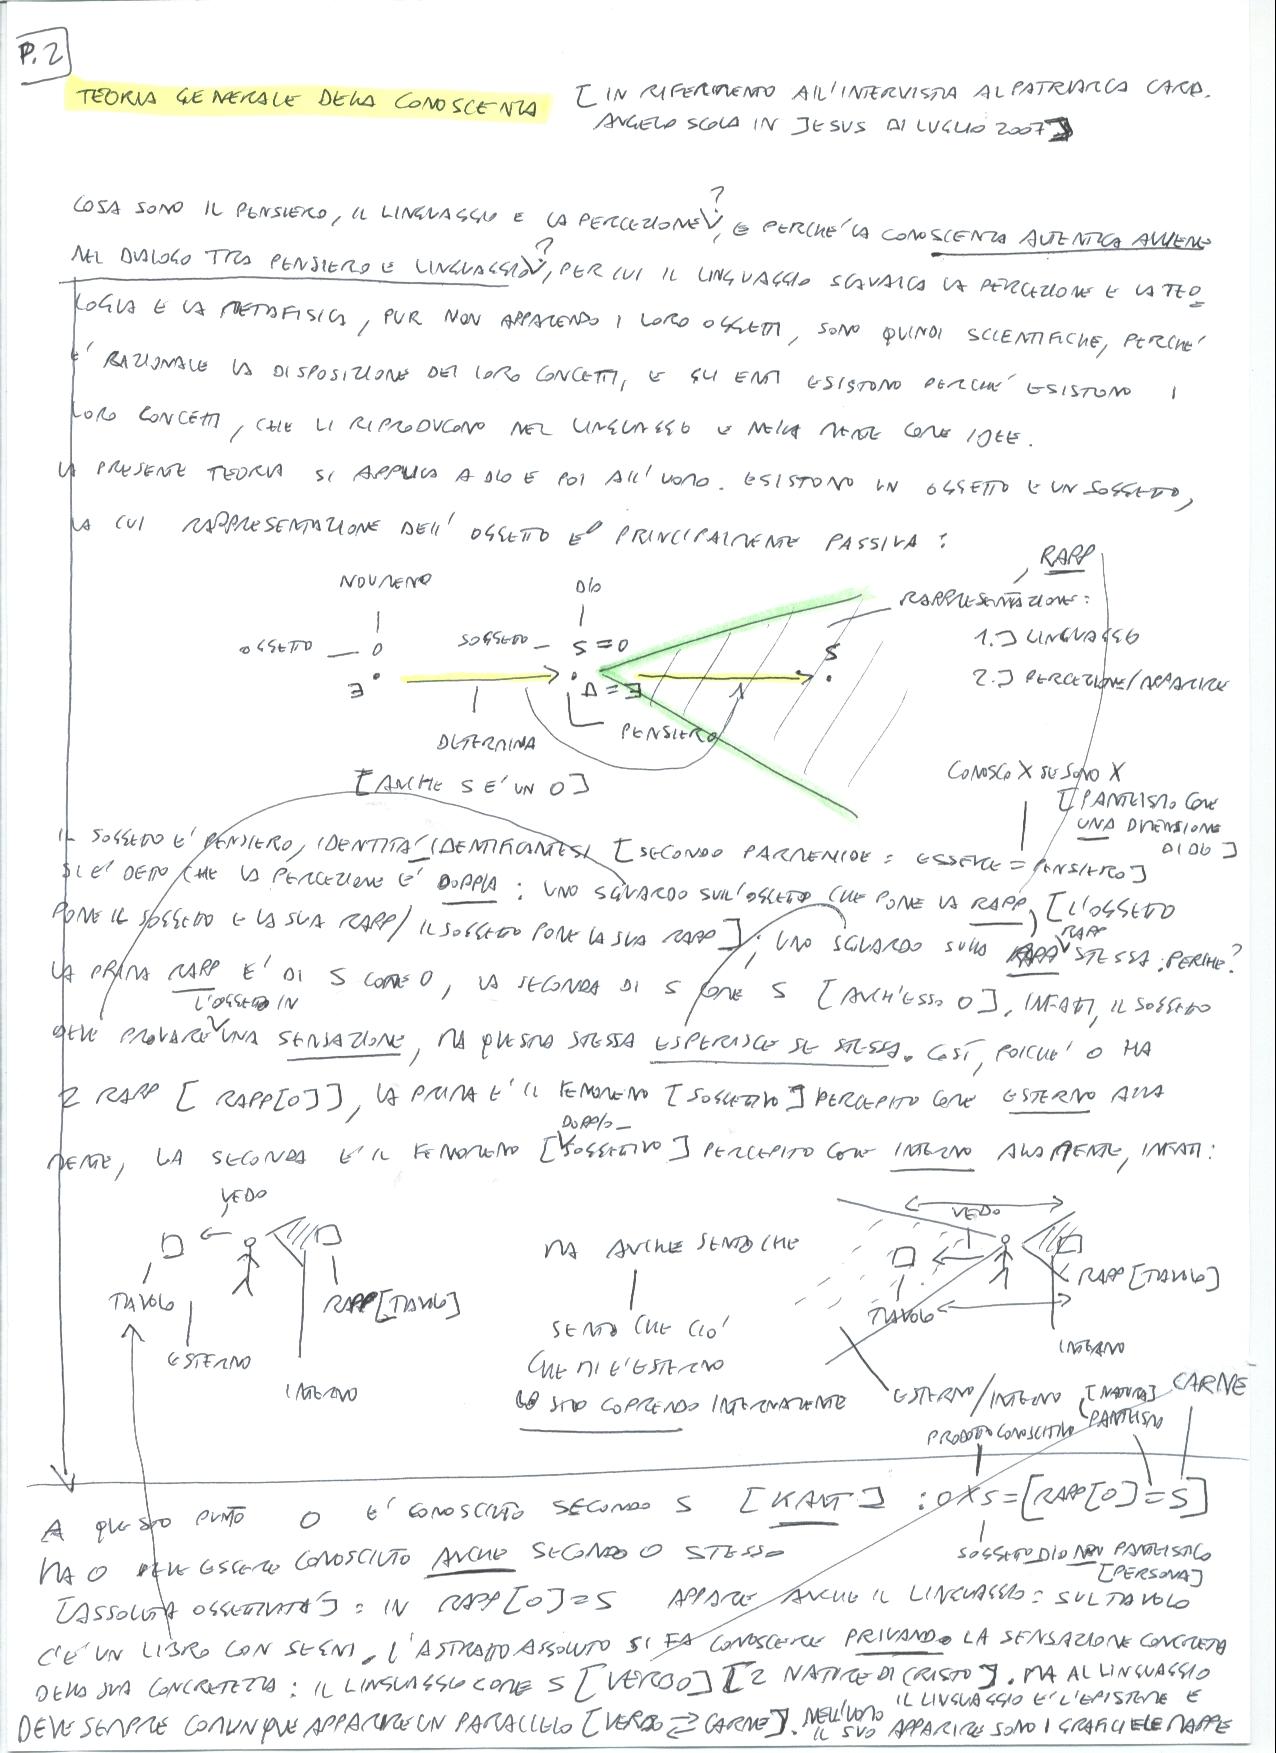 P.2
TEORIA GENERALE DELLA CONOSCENZA [IN RIFERIMENTO ALL'INTERVISTA AL PATRIARCA CARD.
ANGELO SCOLA IN JESUS DI LUGLIO 2007]
COSA SONO IL PENSIERO, IL LINGUAGGIO E LA PERCEZIONE?, E PERCHE' LA CONOSCENZA AUTENTICA AVVIENE
NEL DIALOGO TRA PENSIERO E LINGUAGGIO?, PER CUI IL LINGUAGGIO SCAVALCA LA PERCEZIONE E LA TEO
LOGIA E LA METAFISICA, PUR NON APPARENDO I LORO OGGETTI, SONO QUINDI SCIENTIFICHE, PERCHE'
E' RAZIONALE LA DISPOSIZIONE DEI LORO CONCETTI, E GLI ENTI ESISTONO PERCHE' ESISTONO I
LORO CONCETTI, CHE LI RIPRODUCONO NEL LINGUAGGIO E NELLA MENTE COME IDEE.
LA PRESENTE TEORIA SI APPLICA A DIO E POI ALL'UOMO. ESISTONO UN OGGETTO E UN SOGGETTO,
LA CUI RAPPRESENTAZIONE DELL'OGGETTO E' PRINCIPALMENTE PASSIVA:
NOUMENO
DIO
, RAPP
RAPPRESENTAZIONE:
OGGETTO — O
SOGGETTO — S = O
S
1.] LINGUAGGIO
2.] PERCEZIONE/APPARIRE
∃
Δ = ∃
1
DETERMINA
PENSIERO
[ANCHE S E' UN O]
CONOSCO X SE SONO X
[PANTEISMO COME
UNA DIMENSIONE
DI DIO]
IL SOGGETTO E' PENSIERO, IDENTITA' IDENTIFICANTESI [SECONDO PARMENIDE: ESSERE = PENSIERO]
SI E' DETTO CHE LA PERCEZIONE E' DOPPIA: UNO SGUARDO SULL'OGGETTO CHE PONE LA RAPP, [L'OGGETTO
PONE IL SOGGETTO E LA SUA RAPP/IL SOGGETTO PONE LA SUA RAPP]; UNO SGUARDO SULLA RAPP STESSA. PERCHE'?
LA PRIMA RAPP E' DI S COME O, LA SECONDA DI S COME S [ANCH'ESSO O]. INFATTI, IL SOGGETTO
DEVE PROVARE L'OGGETTO IN UNA SENSAZIONE, MA QUESTA STESSA ESPERISCE SE STESSA. COSI', POICHE' O HA
2 RAPP [RAPP[O]], LA PRIMA E' IL FENOMENO [SOGGETTIVO] PERCEPITO COME ESTERNO ALLA
MENTE, LA SECONDA E' IL FENOMENO [DOPPIO-SOGGETTIVO] PERCEPITO COME INTERNO ALLA MENTE, INFATTI:
VEDO
TAVOLO
ESTERNO
RAPP[TAVOLO]
INTERNO
MA ANCHE SENTO CHE
SENTO CHE CIO'
CHE MI E' ESTERNO
LO STO COPRENDO INTERNAMENTE
VEDO
TAVOLO
RAPP[TAVOLO]
INTERNO
ESTERNO/INTERNO
PRODOTTO CONOSCITIVO
[NATURA]
PANTEISMO
CARNE
A QUESTO PUNTO O E' CONOSCIUTO SECONDO S [KANT] : O X S = [RAPP[O] = S]
MA O DEVE ESSERE CONOSCIUTO ANCHE SECONDO O STESSO
SOGGETTO DIO NON PANTEISTICO
[PERSONA]
[ASSOLUTA OGGETTIVITA']: IN RAPP[O] = S APPARE ANCHE IL LINGUAGGIO: SUL TAVOLO
C'E' UN LIBRO CON SEGNI. L'ASTRATTO ASSOLUTO SI FA CONOSCERE PRIVANDO LA SENSAZIONE CONCRETA
DELLA SUA CONCRETEZZA: IL LINGUAGGIO COME S [VERBO] [2 NATURE DI CRISTO]. MA AL LINGUAGGIO
DEVE SEMPRE COMUNQUE APPARIRE UN PARALLELO [VERBO ⇄ CARNE]. NELL'UOMO IL LINGUAGGIO E' L'EPISTEME E
IL SUO APPARIRE SONO I GRAFICI E LE MAPPE